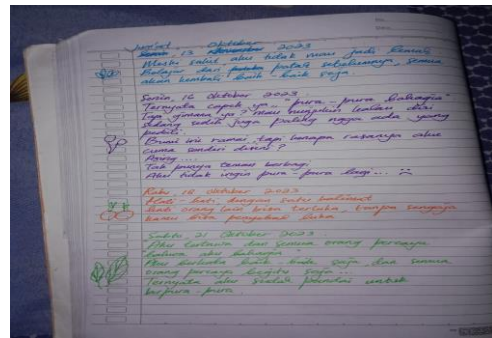 Jum'at, Oktober
13 2023
Meski sakit aku tidak mau jadi
Belajar dari patah sebelumnya, semua
akan kembali baik-baik saja.
Senin, 16 Oktober 2023
Ternyata capek ya.. "pura-pura bahagia"
Tapi gimana ya? mau nunjukin kalau diri
sedang sedih juga paling ngga ada yang
peduli.
Bumi ini ramai, tapi kenapa rasanya aku
cuma sendiri disini?
Asing....
Tak punya teman berbagi
Aku tidak ingin pura-pura lagi...
Rabu, 18 Oktober 2023
Hati-hati dengan satu kalimat
orang lain bisa terluka, tanpa sengaja
kamu bisa penyebab luka
Sabtu 21 Oktober 2023
Aku tertawa dan semua orang percaya
bahwa aku bahagia
Aku berkata baik-baik saja, dan semua
orang percaya begitu saja..
Ternyata aku sudah untuk
berpura-pura